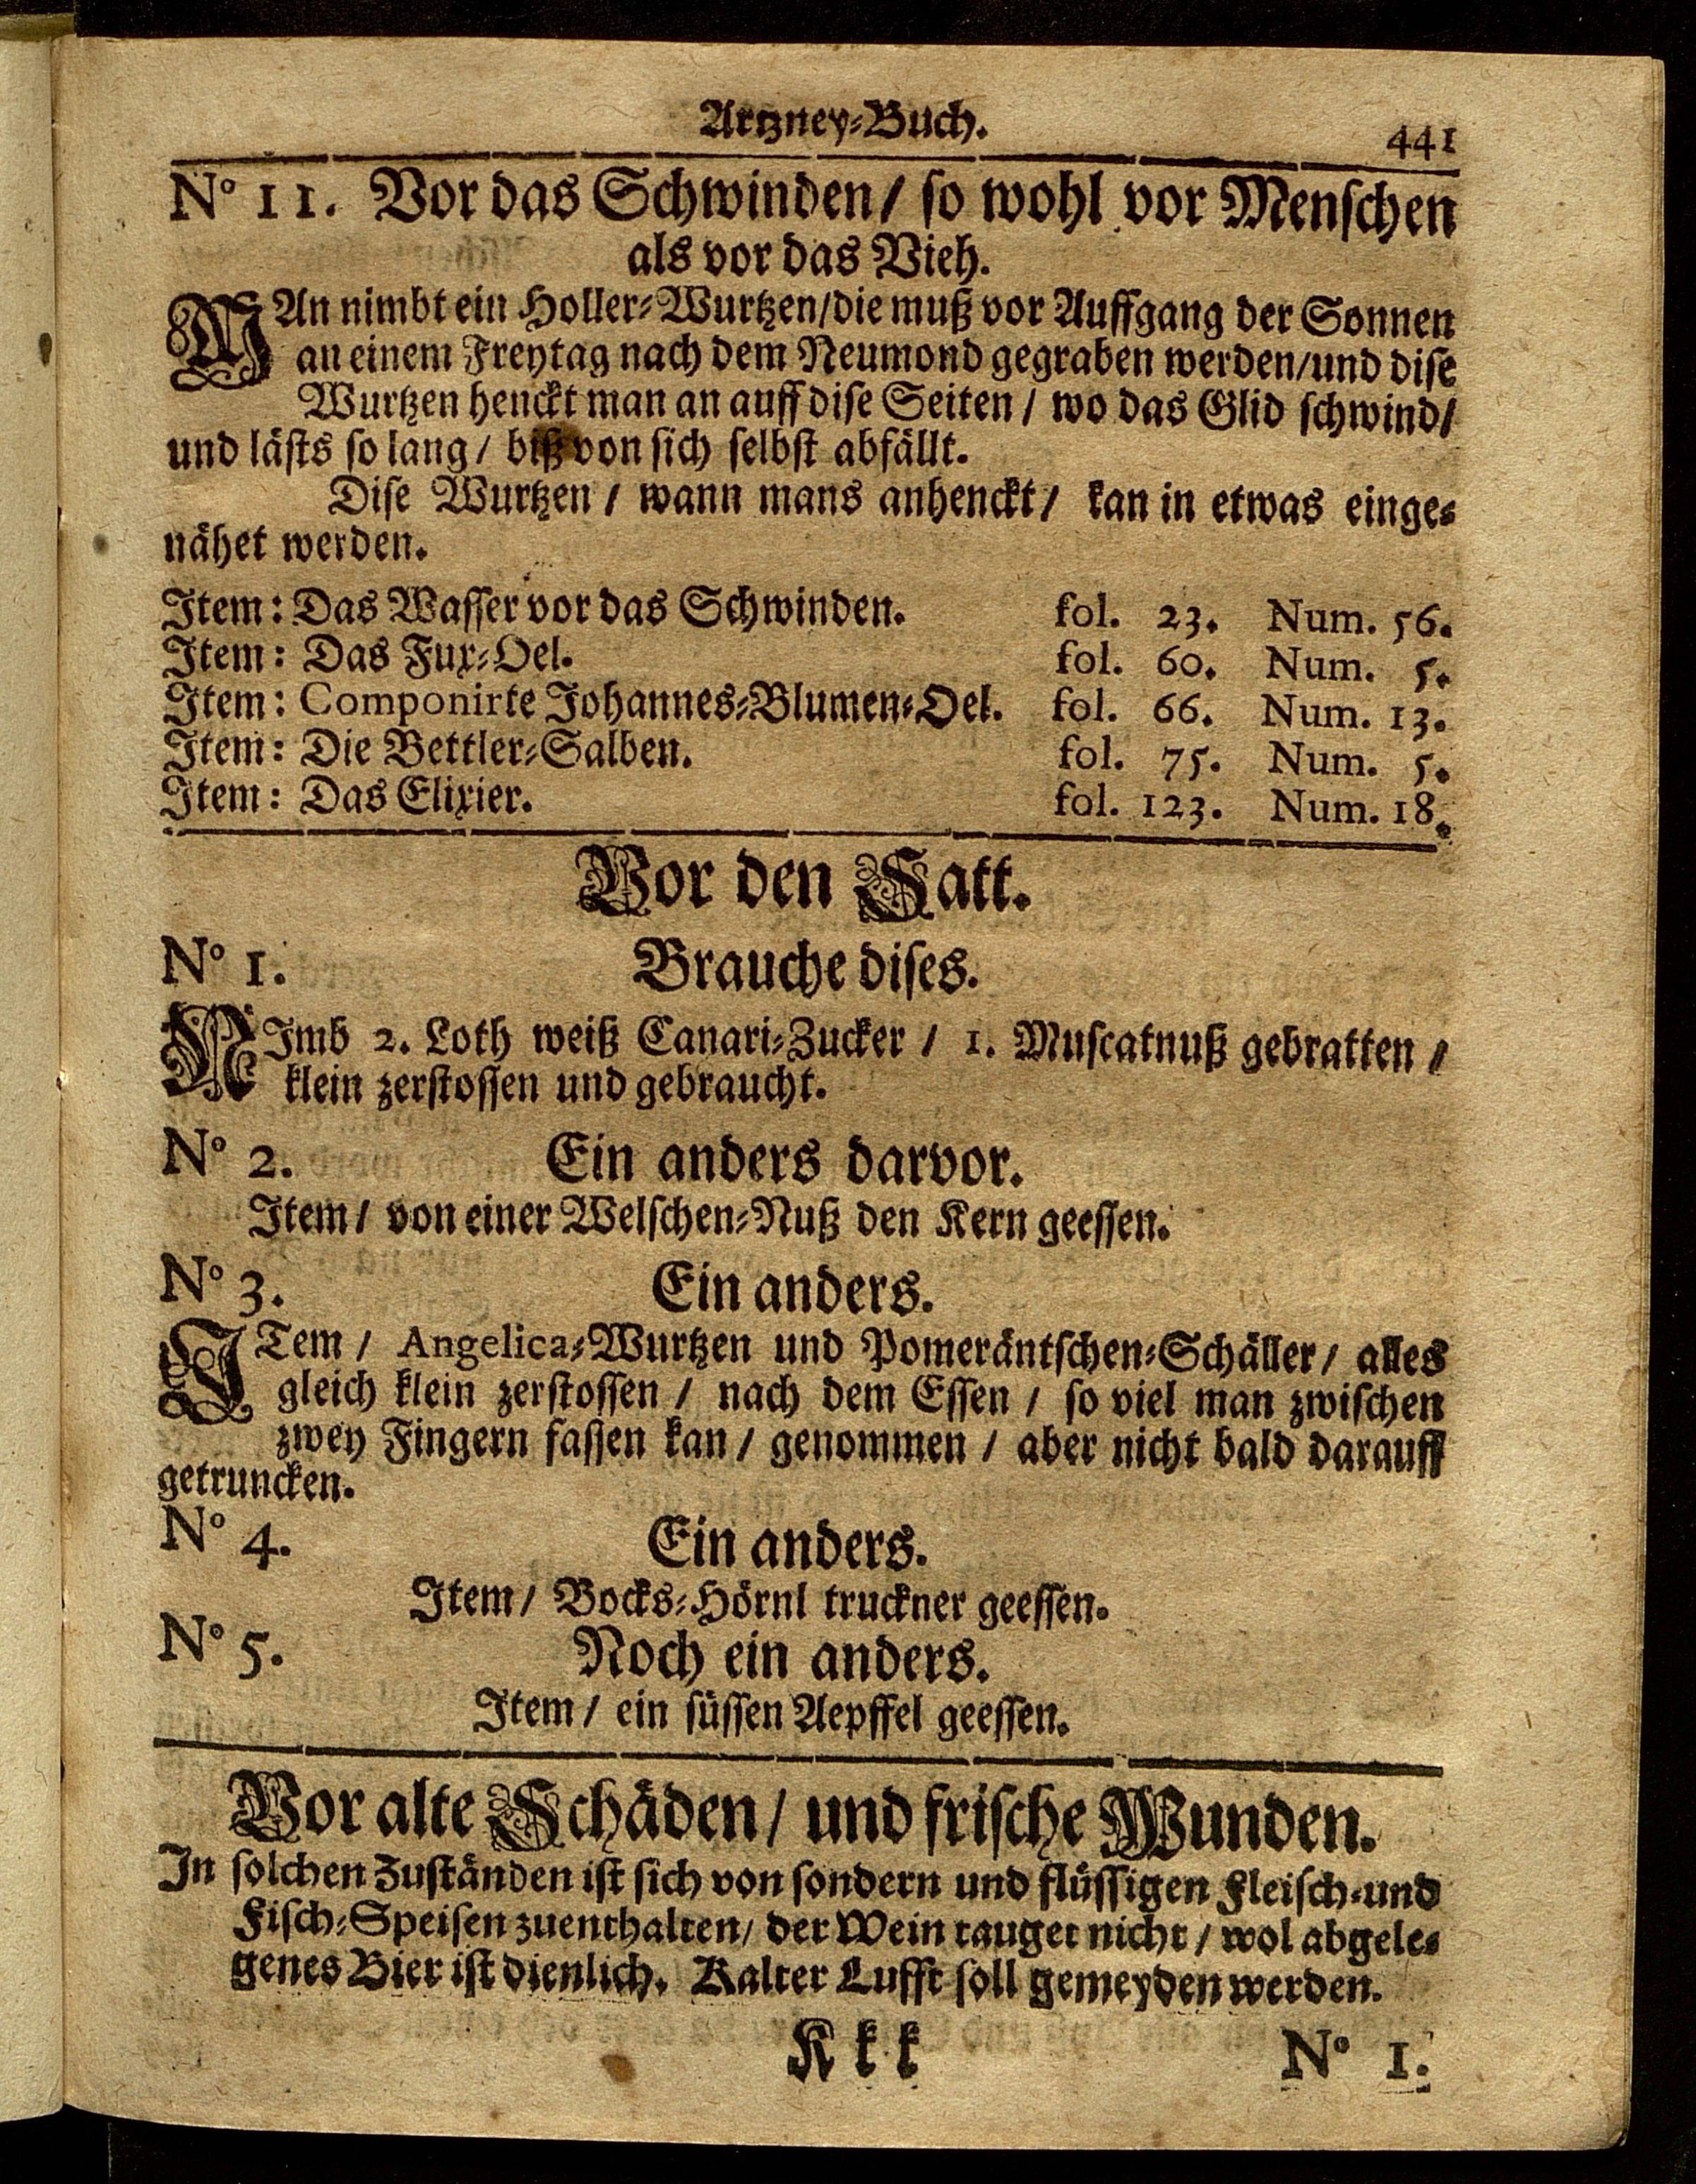 Artzney-Buch.
441
N° 11. Vor das Schwinden / so wohl vor Menschen
als vor das Vieh.
MAn nimbt ein Holler-Wurtzen / die muß vor Auffgang der Sonnen
an einem Freytag nach dem Neumond gegraben werden / und dise
Wurtzen henckt man an auff dise Seiten / wo das Glid schwind /
und lästs so lang / biß von sich selbst abfällt.
Dise Wurtzen / wann mans anhenckt / kan in etwas einge-
nähet werden.
Item: Das Wasser vor das Schwinden. fol. 23. Num. 56.
Item: Das Fux-Oel. fol. 60. Num. 5.
Item: Componirte Johannes-Blumen-Oel. fol. 66. Num. 13.
Item: Die Bettler-Salben. fol. 75. Num. 5.
Item: Das Elixier. fol. 123. Num. 18.
Vor den Satt.
N° 1. Brauche dises.
NImb 2. Loth weiß Canari-Zucker / 1. Muscatnuß gebratten /
klein zerstossen und gebraucht.
N° 2. Ein anders darvor.
Item / von einer Welschen-Nuß den Kern geessen.
N° 3. Ein anders.
ITem / Angelica-Wurtzen und Pomeräntschen-Schäller / alles
gleich klein zerstossen / nach dem Essen / so viel man zwischen
zwey Fingern fassen kan / genommen / aber nicht bald darauff
getruncken.
N° 4. Ein anders.
Item / Bocks-Hörnl truckner geessen.
N° 5. Noch ein anders.
Item / ein süssen Aepffel geessen.
Vor alte Schäden / und frische Wunden.
In solchen Zuständen ist sich von sondern und flüssigen Fleisch-und
Fisch-Speisen zuenthalten / der Wein tauget nicht / wol abgele-
genes Bier ist dienlich. Kalter Lufft soll gemeyden werden.
Kkk N° 1.